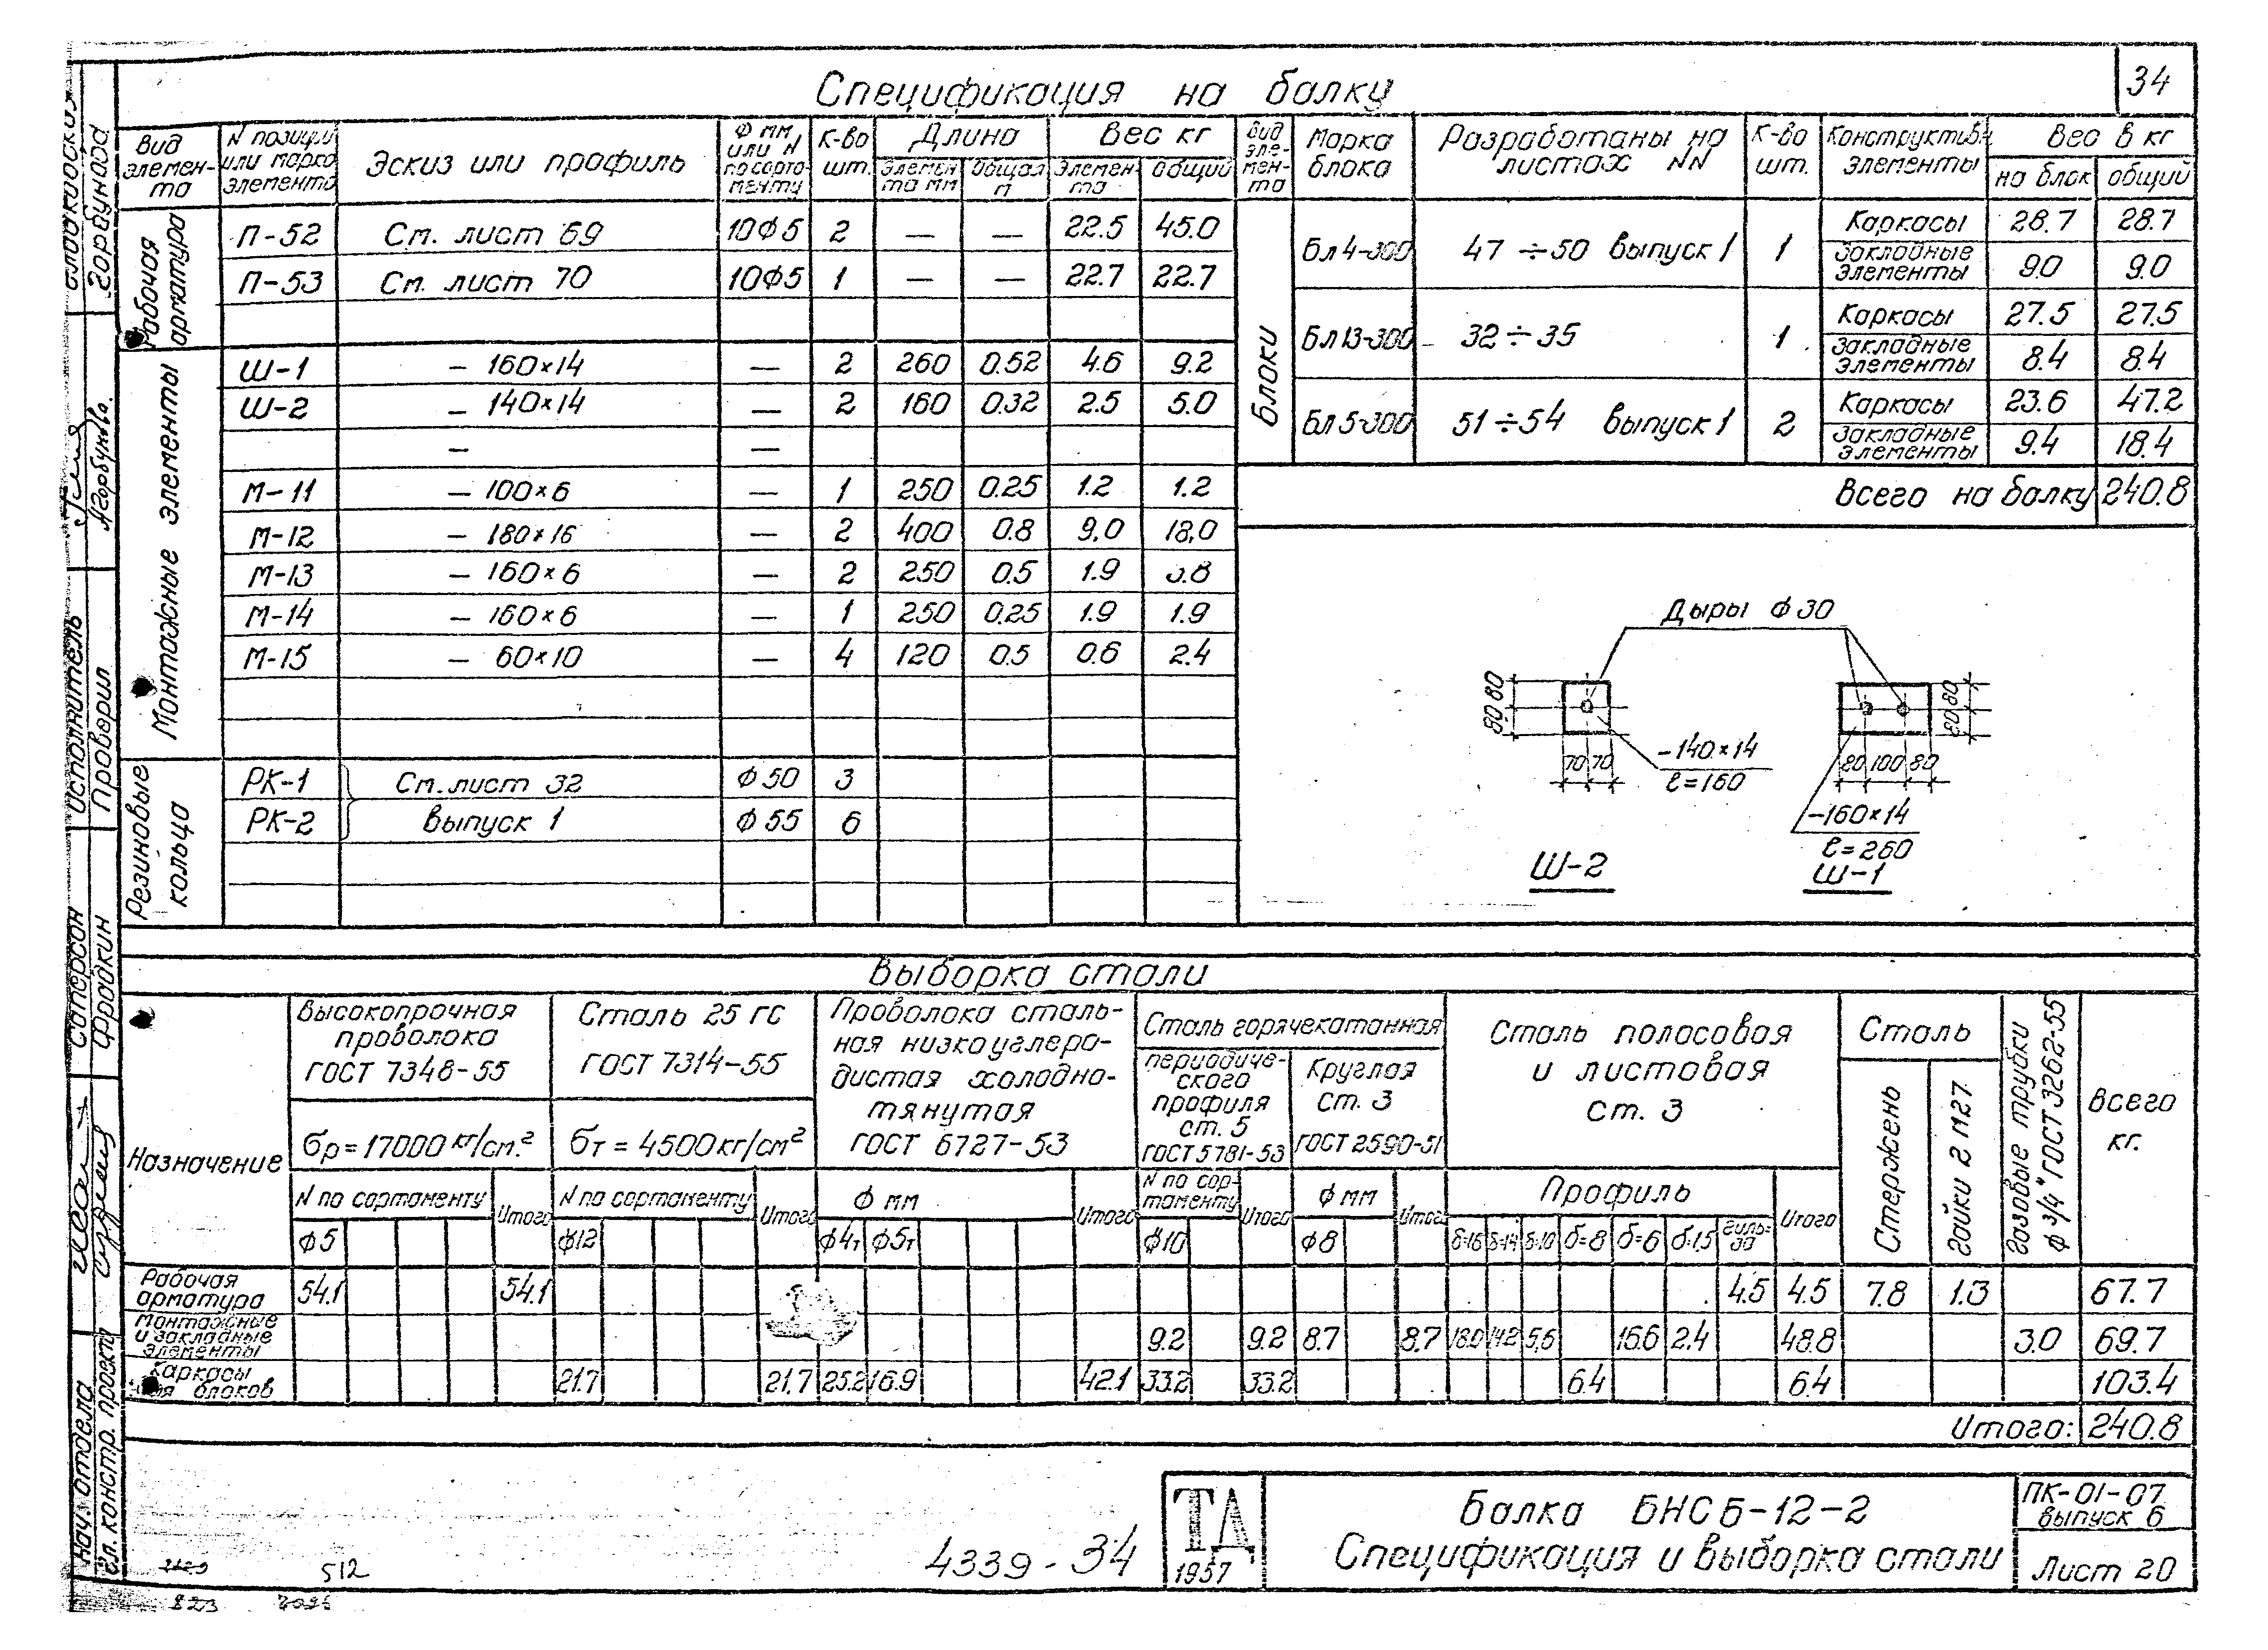 34
Спецификация на балку
Вид элемен-та | N позиции или марка элемента | Эскиз или профиль | Ф мм или N по сорта-менту | К-во шт. | Длина | Вес кг
Элемен та мм | Общая м | Элемен-та | Общий
Рабочая арматура
П-52 См. лист 69 10Ф5 2 — — 22.5 45.0
П-53 См. лист 70 10Ф5 1 — — 22.7 22.7
Монтажные элементы
Ш-1 – 160×14 — 2 260 0.52 4.6 9.2
Ш-2 – 140×14 — 2 160 0.32 2.5 5.0
– —
М-11 – 100×6 — 1 250 0.25 1.2 1.2
М-12 – 180×16 — 2 400 0.8 9.0 18.0
М-13 – 160×6 — 2 250 0.5 1.9 3.8
М-14 – 160×6 — 1 250 0.25 1.9 1.9
М-15 – 60×10 — 4 120 0.5 0.6 2.4
Резиновые кольца
РК-1 См. лист 32 Ф50 3
РК-2 выпуск 1 Ф55 6
Вид эле-мен-та | Марка блока | Разработаны на листах NN | К-во шт. | Конструктивн. элементы | Вес в кг
на блок | общий
Блоки
Бл 4-300 47÷50 выпуск 1 1 Каркасы 28.7 28.7
Закладные элементы 9.0 9.0
Бл 13-300 32÷35 1 Каркасы 27.5 27.5
Закладные элементы 8.4 8.4
Бл 5-300 51÷54 выпуск 1 2 Каркасы 23.6 47.2
Закладные элементы 9.4 18.4
Всего на балку 240.8
Дыры Ф30
80 80
70 70
–140×14
ℓ=160
Ш-2
80 80
80 100 80
–160×14
ℓ=260
Ш-1
Выборка стали
Назначение
Высокопрочная проволока ГОСТ 7348-55
бр=17000 кг/см.²
N по сортаменту | Итого
Ф5
Сталь 25 ГС ГОСТ 7314-55
бт = 4500кг/см²
N по сортаменту | Итого
Ф12
Проволока сталь-ная низкоуглеро-дистая холодно-тянутая ГОСТ 6727-53
Ф мм | Итого
Ф4т Ф5т
Сталь горячекатанная
периодиче-ского профиля ст. 5 ГОСТ 5781-53
N по сор-таменту | Итого
Ф10
Круглая ст. 3 ГОСТ 2590-51
Ф мм | Итого
Ф8
Сталь полосовая и листовая Ст. 3
Профиль | Итого
δ=16 δ=14 δ=10 δ=8 δ=6 δ=1,5 гиль-за
Сталь
Стержень | Гайки 2 М27
Газовые трубки Ф 3/4" ГОСТ 3262-55
Всего кг.
Рабочая арматура 54.1 54.1 4.5 4.5 7.8 1.3 67.7
Монтажные и закладные элементы 9.2 9.2 8.7 8.7 18.0 14.2 5.6 16.6 2.4 48.8 3.0 69.7
Каркасы для блоков 21.7 21.7 25.2 16.9 42.1 33.2 33.2 6.4 6.4 103.4
Итого: 240.8
ТД
1957
Балка БНСБ-12-2
Спецификация и выборка стали
ПК-01-07
выпуск 6
Лист 20
4339-34
512
823
Нач. отдела
Гл. констр. проекта
Саперсон
Фрадкин
Исполнитель
Проверил
Горбунова